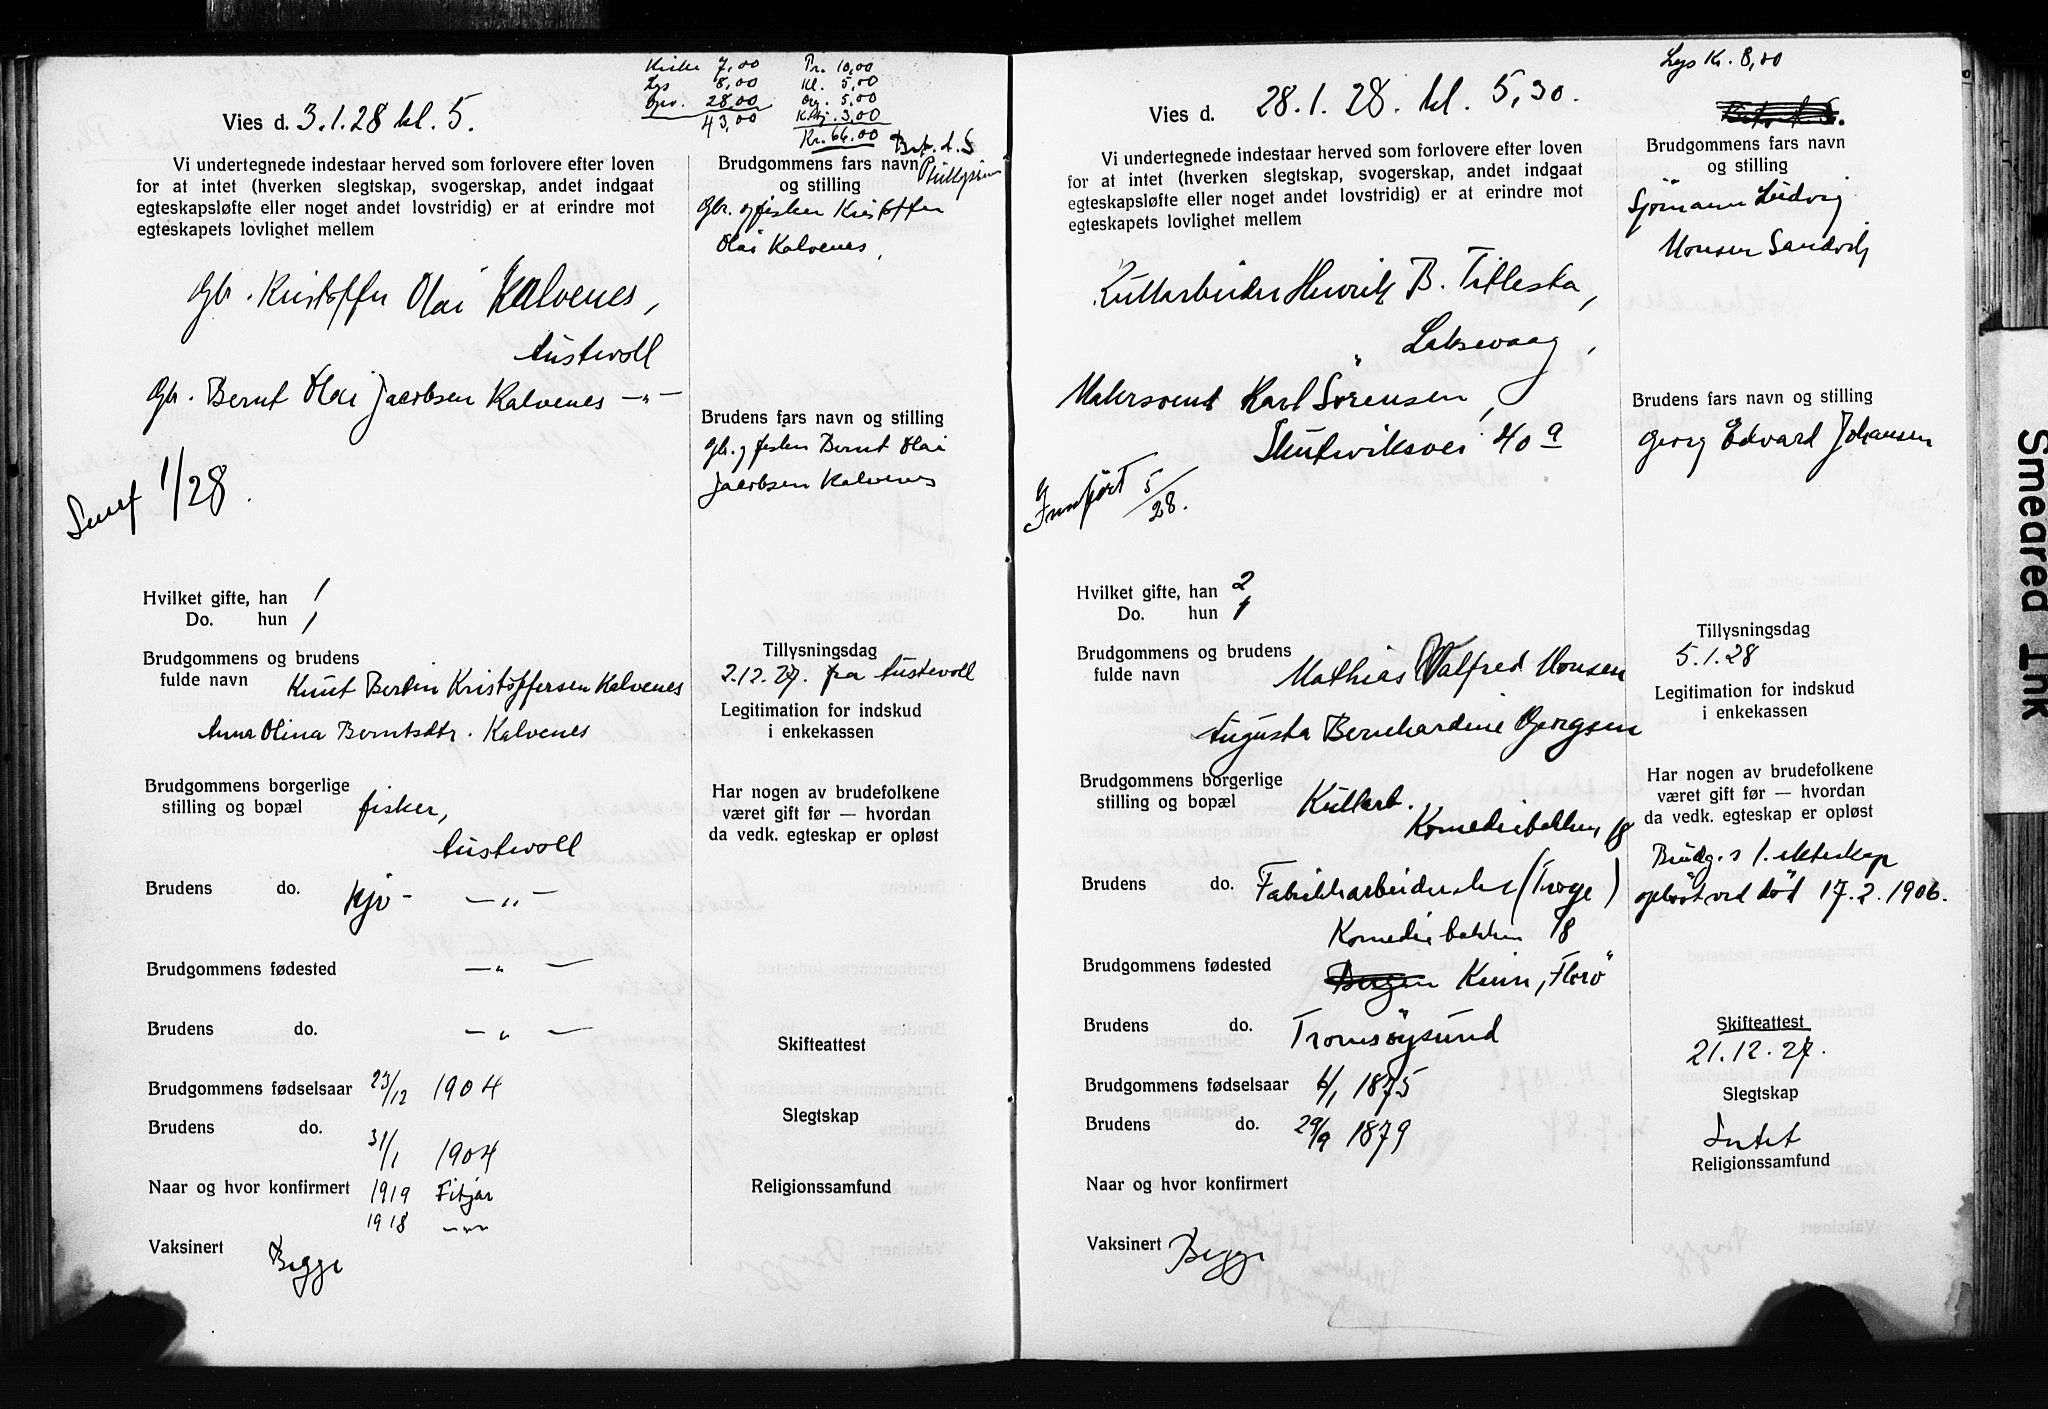 Kirke 7,00 Pr. 10,00
Lys 8,00 Kl. 5,00
Opv. 28,00 Org. 5.00
43,00 3,00
Kr. 66.00
Vies d. 3.1.28 kl. 5.
Vi undertegnede indestaar herved som forlovere efter loven
for at intet (hverken slegtskap, svogerskap, andet indgaat
egteskapsløfte eller noget andet lovstridig) er at erindre mot
egteskapets lovlighet mellem
Gbr. Kristoffer Olai Kalvenes,
Austevoll
Gbr. Bernt Olai Jacobsen Kalvenes —„—
1/28.
Hvilket gifte, han 1
Do. hun 1
Brudgommens og brudens
fulde navn Knut Bertin Kristoffersen Kalvenes
Anna Olina Berntsdtr. Kalvenes
Brudgommens borgerlige
stilling og bopæl fisker,
Austevoll
Brudens do. —„—
Brudgommens fødested —„—
Brudens do. —„—
Brudgommens fødselsaar 23/12 1904
Brudens do.
31/1 1904
Naar og hvor konfirmert 1919 Fitjar
1918 —„—
Vaksinert Begge
Brudgommens fars navn
og stilling
Gbr. og fisker Kristoffer
Olai Kalvenes,
Brudens fars navn og stilling
Gbr. og fisker Bernt Olai
Jacobsen Kalvenes
Tillysningsdag
2.12.27. fra Austevoll
Legitimation for indskud
i enkekassen
Har nogen av brudefolkene
været gift før — hvordan
da vedk. egteskap er opløst
Skifteattest
Slegtskap
Religionssamfund
Lys Kr. 8,00
Vies d. 28.1.28. kl. 5,30.
Vi undertegnede indestaar herved som forlovere efter loven
for at intet (hverken slegtskap, svogerskap, andet indgaat
egteskapsløfte eller noget andet lovstridig) er at erindre mot
egteskapets lovlighet mellem
Kullarbeider Henrik B. Tillesta,
Laksevaag,
Malersvend Karl Sörensen,
Skuteviksvei 40 a
Innfört 5/28.
Hvilket gifte, han 2
Do. hun 1
Brudgommens og brudens
fulde navn Mathias Valfred Monsen
Augusta Bernhardine Georgsen
Brudgommens borgerlige
stilling og bopæl Kullarb.
Komediebakken 18
Brudens do. Fabrikkarbeiderske
Komediebakken 18
Brudgommens fødested Bergen Kinn, Florö
Brudens do. Tromsöysund
Brudgommens fødselsaar 6/1 1875
Brudens do. 29/9 1879
Naar og hvor konfirmert
Vaksinert Begge
Brudgommens fars navn
og stilling
Sjömann Ludvig
Monsen Sandvik
Brudens fars navn og stilling
Georg Edvard Johansen
Tillysningsdag
5.1.28
Legitimation for indskud
i enkekassen
Har nogen av brudefolkene
været gift før — hvordan
da vedk. egteskap er opløst
Brudg.s 1. ekteskap
oplöst ved död 17.2.1906.
Skifteattest
21.12.27.
Slegtskap
Intet
Religionssamfund
Smeared Ink